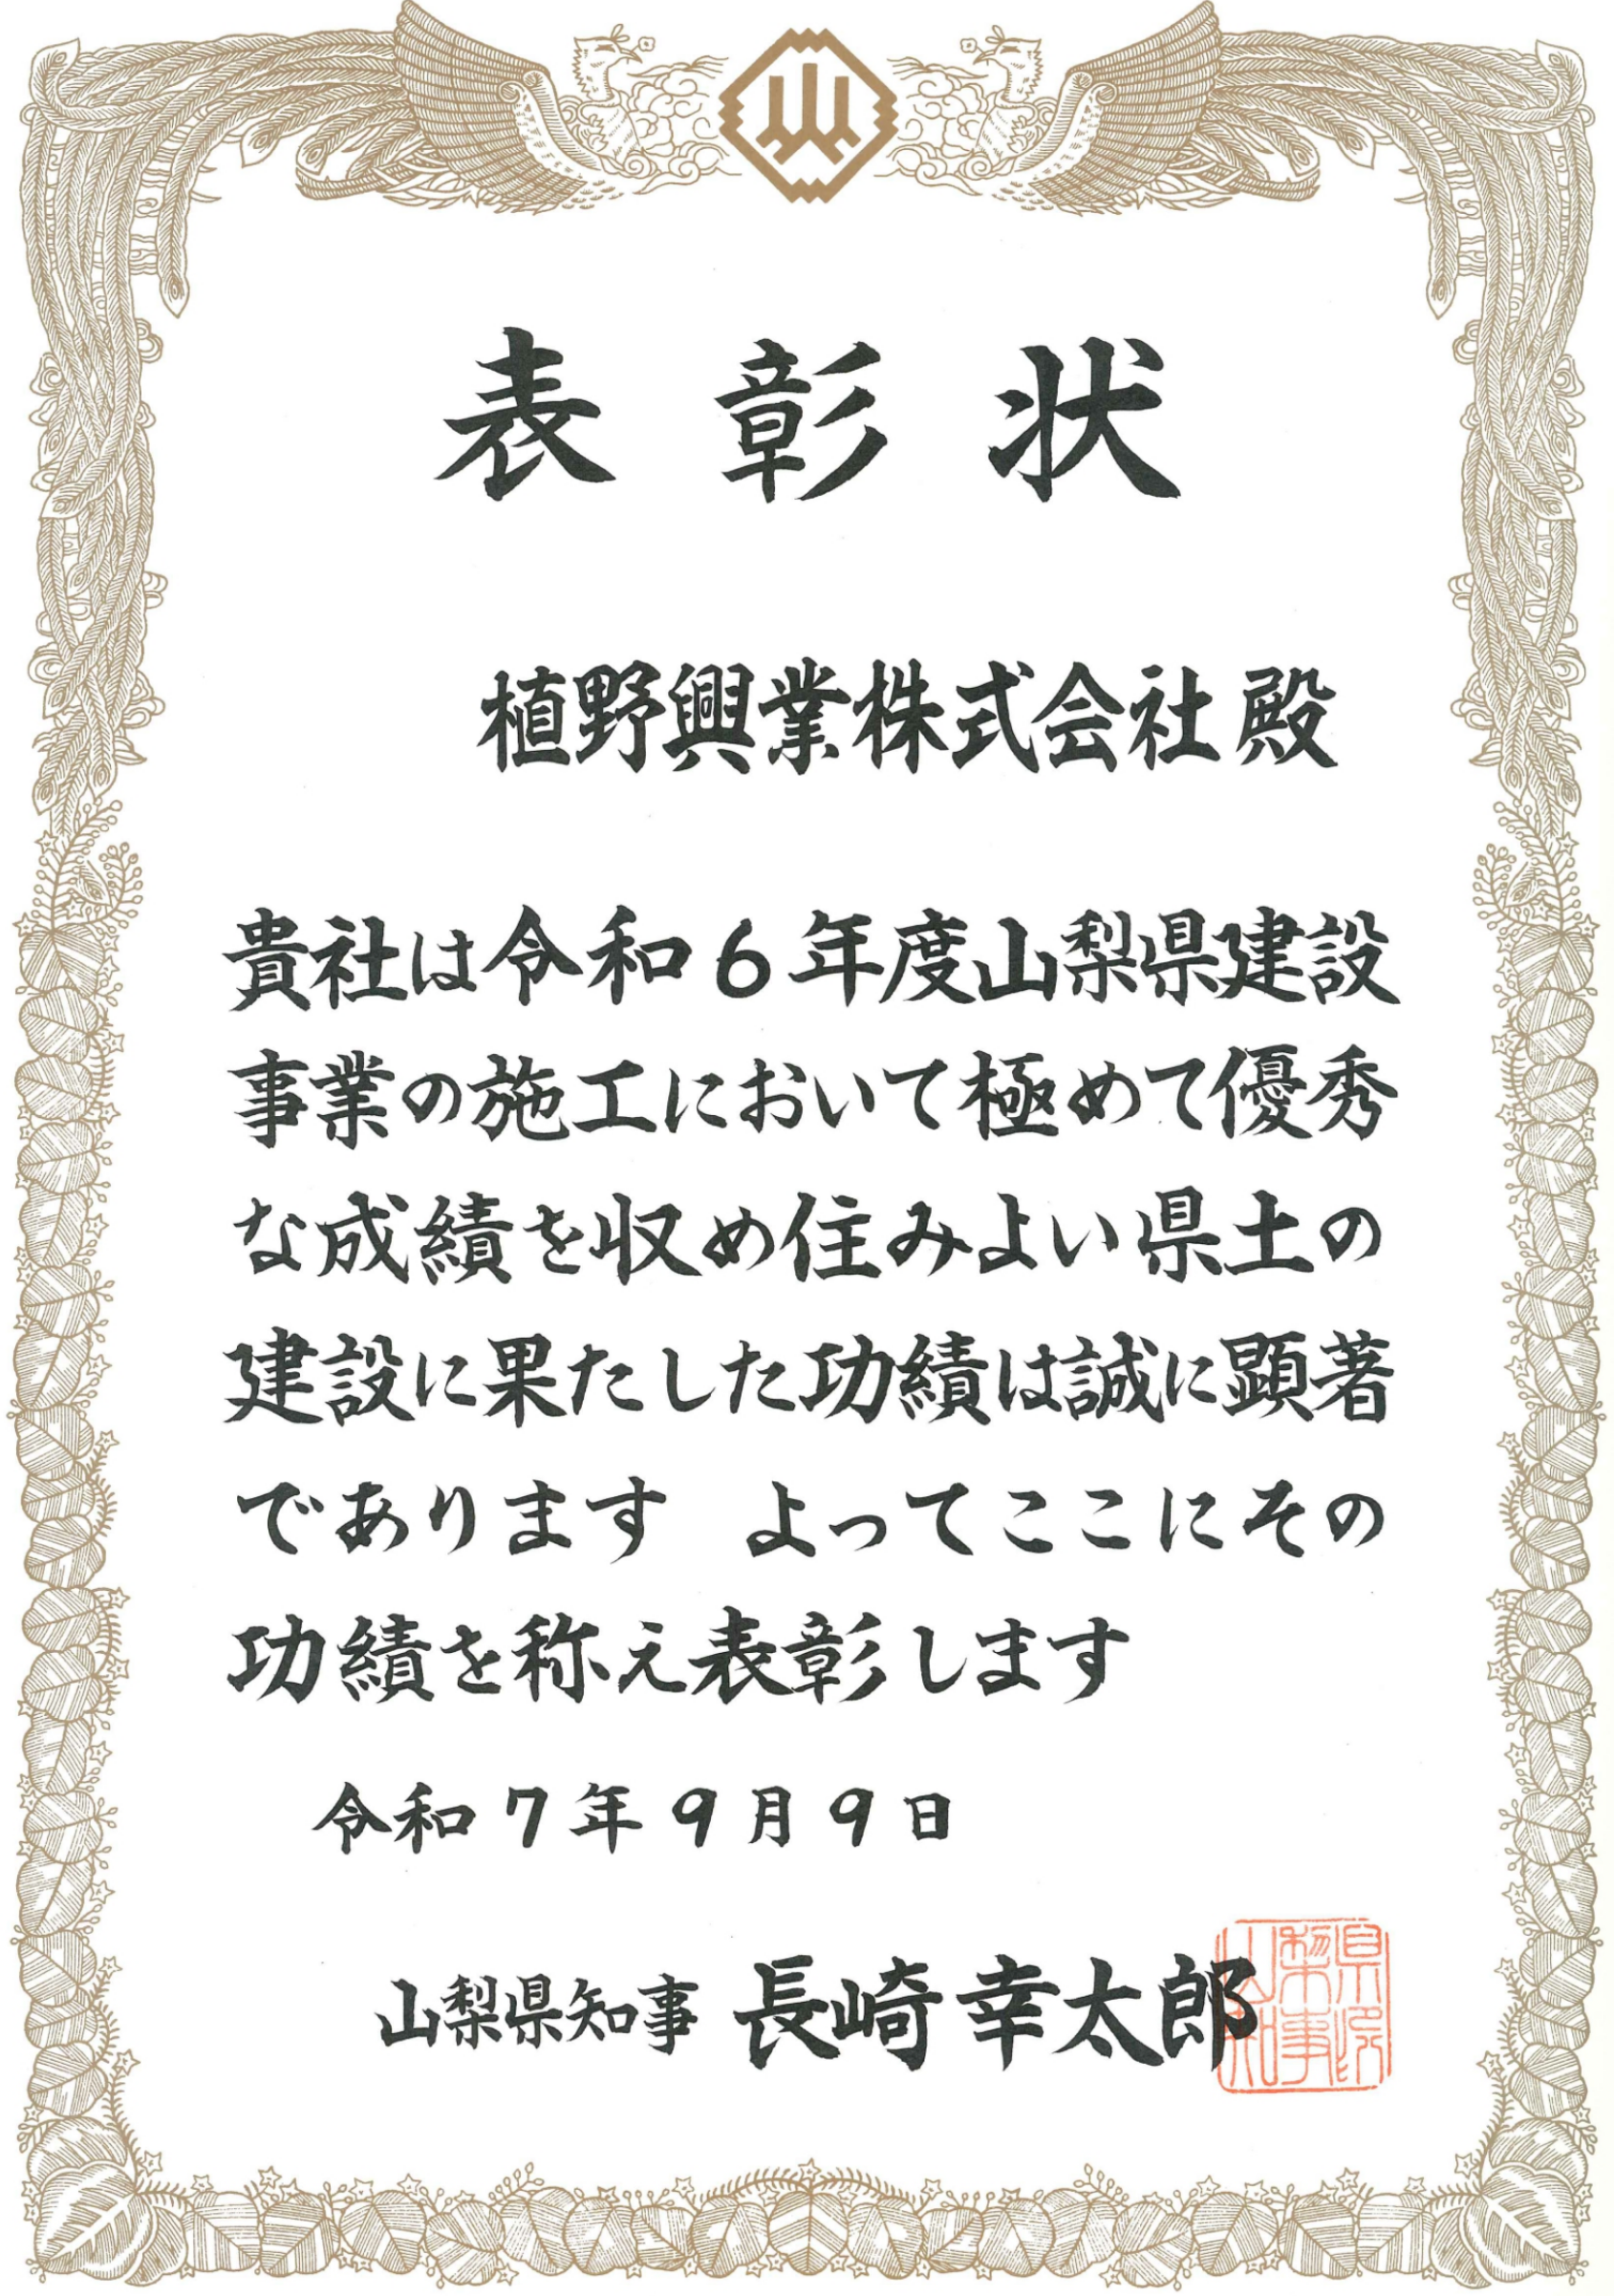 表彰状
植野興業株式会社 殿
貴社は令和6年度山梨県建設
事業の施工において極めて優秀
な成績を収め住みよい県土の
建設に果たした功績は誠に顕著
であります　よってここにその
功績を称え表彰します
令和7年9月9日
山梨県知事 長崎幸太郎